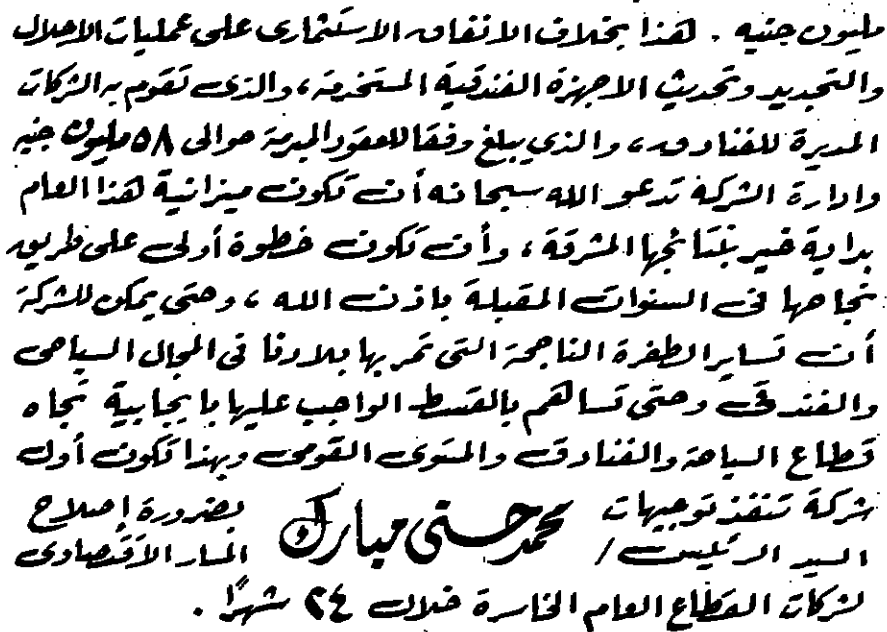 مليون جنيه . هذا بخلاف الانفاق الاستثمارى على عمليات الاحلال
والتجديد وتحديث الاجهزة الفندقية المستخدمة ، والذى تقوم به الشركات
المديرة للفنادق ، والذى يبلغ وفقا للعقود المبرمة حوالى ٥٨ مليون جنيه
وادارة الشركة تدعو الله سبحانه أن تكون ميزانية هذا العام
بداية خير بنتائجها المشرقة ، وأن تكون خطوة أولى على طريق
نجاحها فى السنوات المقبلة باذن الله ، وحتى يمكن للشركة
أن تساير الطفرة الناجحة التى تمر بها بلادنا فى المجال السياحى
والفندقى وحتى تساهم بالقسط الواجب عليها بايجابية تجاه
قطاع السياحة والفنادق والمستوى القومى وبهذا تكون أول
شركة تنفذ توجيهات
السيد الرئيس / محمد حسنى مبارك بضرورة إصلاح
المسار الاقتصادى
لشركات القطاع العام الخاسرة خلال ٢٤ شهرًا .